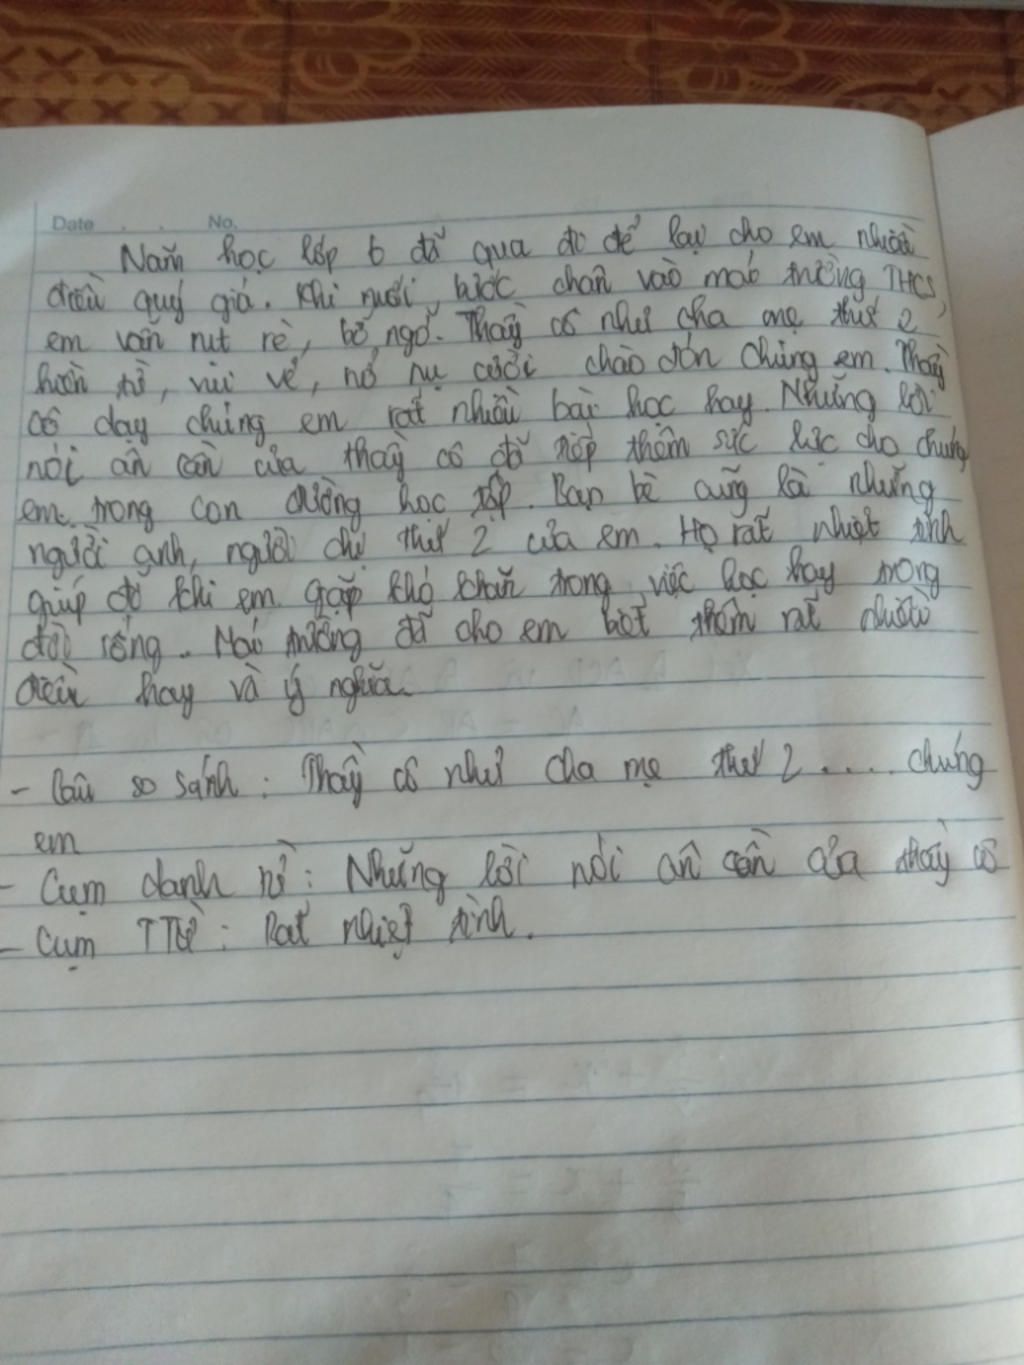 Date . . No.
Năm học lớp 6 đã qua đi để lại cho em nhiều
điều quý giá. Khi mới bước chân vào mái trường THCS,
em vẫn rụt rè, bỡ ngỡ. Thầy cô như cha mẹ thứ 2
hiền từ, vui vẻ, nở nụ cười chào đón chúng em. Thầy
cô dạy chúng em rất nhiều bài học hay. Những lời
nói ân cần của thầy cô đã tiếp thêm sức lực cho chúng
em trong con đường học tập. Bạn bè cũng là những
người anh, người chị thứ 2 của em. Họ rất nhiệt tình
giúp đỡ khi em gặp khó khăn trong việc học hay trong
đời sống. Mái trường đã cho em biết thêm rất nhiều
điều hay và ý nghĩa.
- Câu so sánh : Thầy cô như cha mẹ thứ 2 .... chúng
em
- Cụm danh từ : Những lời nói ân cần của thầy cô
- Cụm TTừ : Rất nhiệt tình.